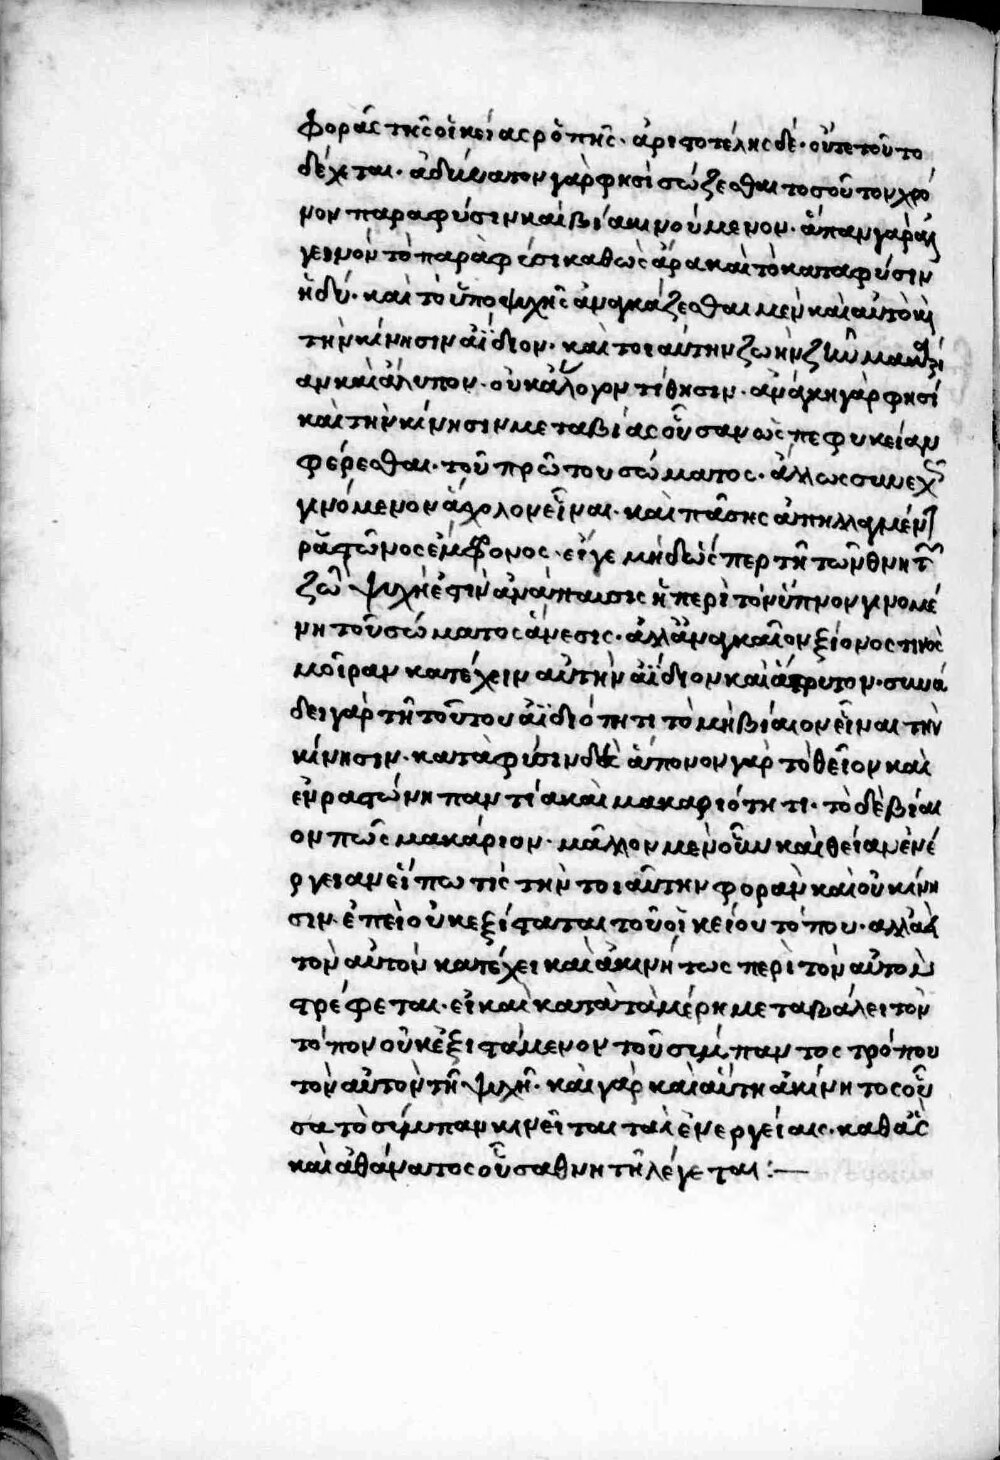 φορᾶς τῆς οἰκείας ρὁπῆς· ἀριστοτέλης δέ· οὔτε τοῦτο
δέχεται· ἀδύνατον γάρ φησὶ σώζεσθαι τοσοῦτον χρό
νον παραφύσιν καὶ βίᾳ κινούμενον· ἅπαν γὰρ ἀλ
γεινὸν τὸ παρὰ φύσι καθὼς ἄρα καὶ τὸ κατα φύσιν
ἡδύ· καὶ τὸ ὑπο ψυχῆς ἀναγκάζεσθαι μὲν καὶ αὐτὸ κ
τὴν κίνησιν ἀΐδιον· καὶ τοιαύτην ζωὴν ζῆν μακαρί
αν καὶ ἄλυπον· οὐκ ἄλογον τίθησιν· ἀνάγκη γὰρ φησί
καὶ τὴν κίνησιν μετα βίας οὖσαν ὡς πεφυκείαν
φέρεσθαι· τοῦ πρῶτου σώματος· ἄλλως συνεχ
γινόμενον ἄσχολον εἶναι· καὶ πᾶσης ἀπηλλαγμέν
ρᾳστῶνος ἔμφρονος· εἴγε μὴδ ὡς περ τῆ τῶν θνητ
ζώ ψυχῆ ἐστὶν ἀνάπαυσις ἡ περὶ τὸν ὕπνον γινομέ
νη τοῦ σώματος ἄνεσις· ἀλλ ἀναγκαῖον ξίονος τινὸς
μοῖραν κατέχειν αὐτὴν ἀΐδιον καὶ ἄτρυτον· συνά
δει γὰρ τῆ τοῦτου ἀϊδιότητι τὸ μὴ βίαιον εἶναι τὴν
κίνησιν· κατὰ φύσιν δὲ ἄπονον γὰρ τὸ θεῖον καὶ
ἐν ραστώνη παντία καὶ μακαριότητι· τὸ δὲ βίαι
ον πῶς μακάριον· μᾶλλον μὲν οὖν καὶ θείαν ἐνέ
ργειαν εἴπω τίς τὴν τοιαῦτην φορὰν καὶ οὐ κίνη
σιν ἐπεὶ οὐκ εξίσταται τοῦ οἰκείου τόπου· αλλ ἀεὶ
τὸν αὐτὸν κατέχει καὶ ἀκινήτως περὶ τὸν αὐτον
στρέφεται· εἰ καὶ κατὰ τὰ μέρη μεταβάλει τὸν
τόπον οὐκ ἐξιστάμενον τοῦ σύμπαντος τρόπου
τὸν αὐτὸν τῆ ψυχῆ· καὶ γὰρ καὶ αὕτη ἀκίνητος οὖ
σα τὸ σύμπαν κινεῖται ταὶ ἐνεργείαις· καθὰς
καὶ ἀθάνατος οὖσα θνητῆ λέγεται :—